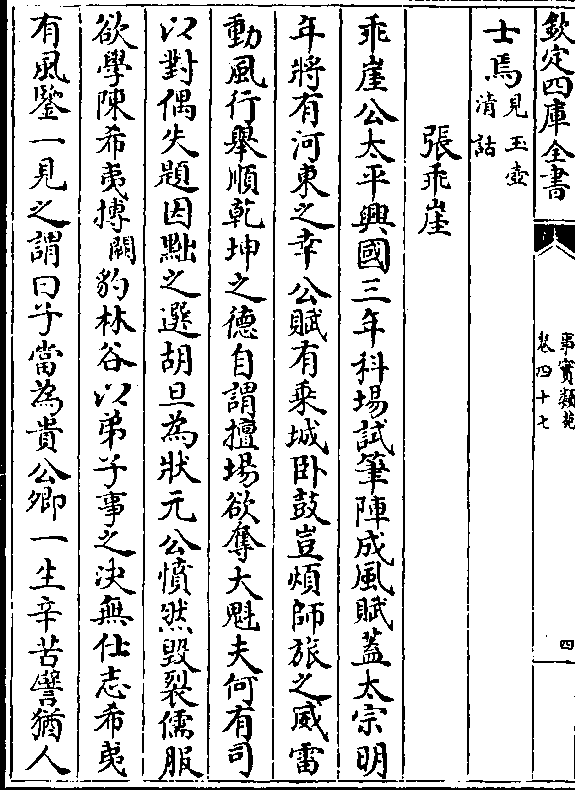 欽定四庫全書
事實類苑
卷四十七
四
士焉見玉壺
清話
張乖崖
乖崖公太平興國三年科場試筆陣成風賦蓋太宗明
年將有河東之幸公賦有乘城卧鼓豈煩師旅之威雷
動風行舉順乾坤之德自謂擅場欲奪大魁夫何有司
以對偶失題因黜之選胡旦為狀元公憤然毀裂儒服
欲學陳希夷搏闕豹林谷以弟子事之決無仕志希夷
有風鑒一見之謂曰子當為貴公卿一生辛苦譬猶人